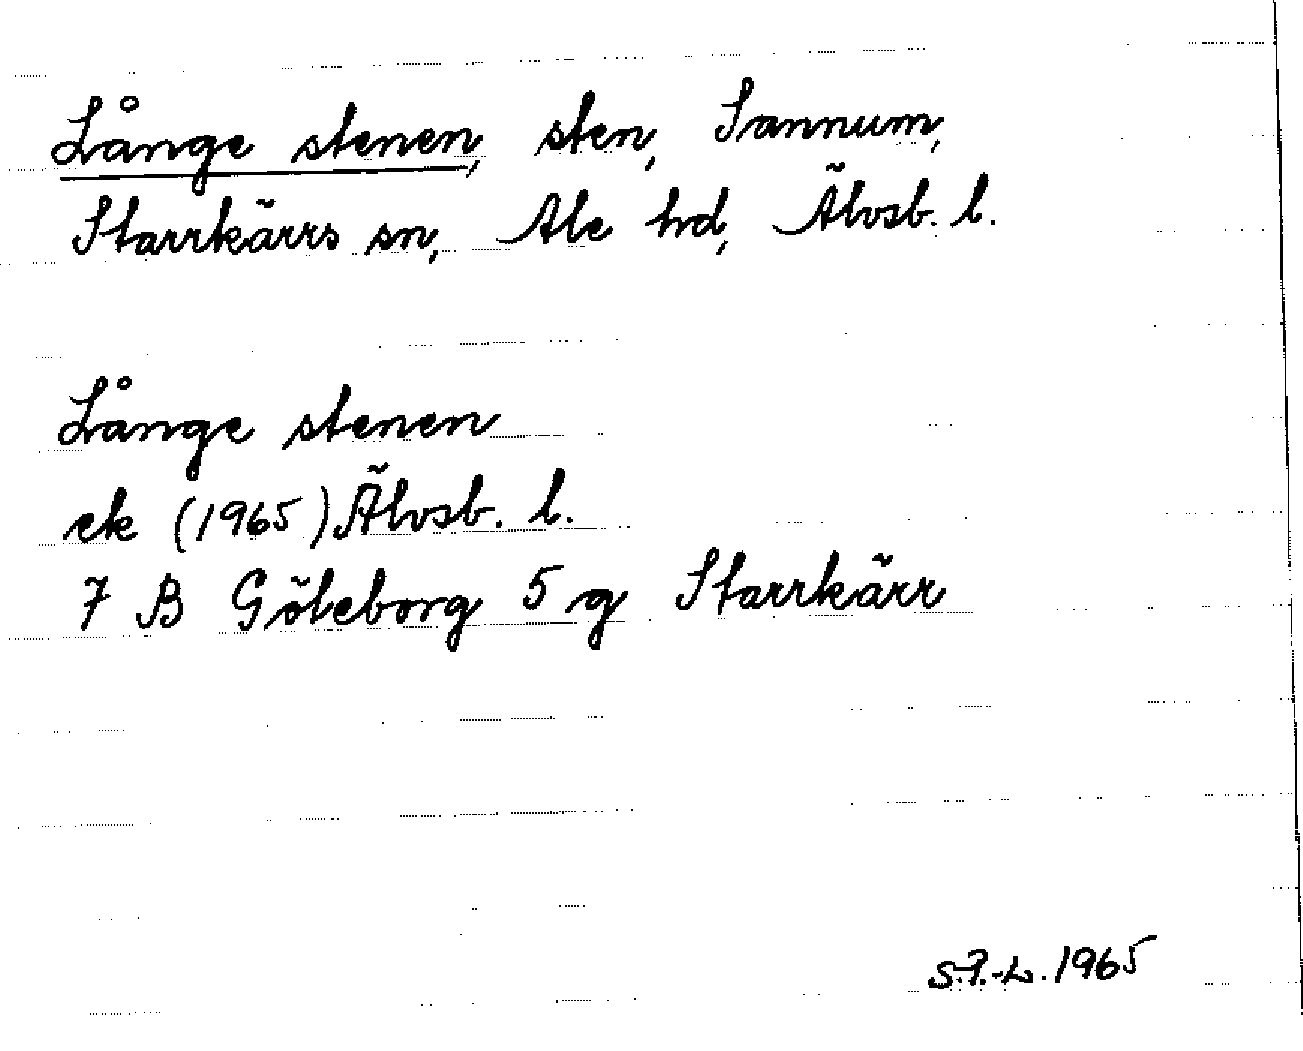 Långe stenen, sten, Sannum,
Starrkärrs sn, Ale hd, Älvsb. l.
Långe stenen
ek (1965) Älvsb. l.
7 B Göteborg 5 g Starrkärr
S.P.-L. 1965